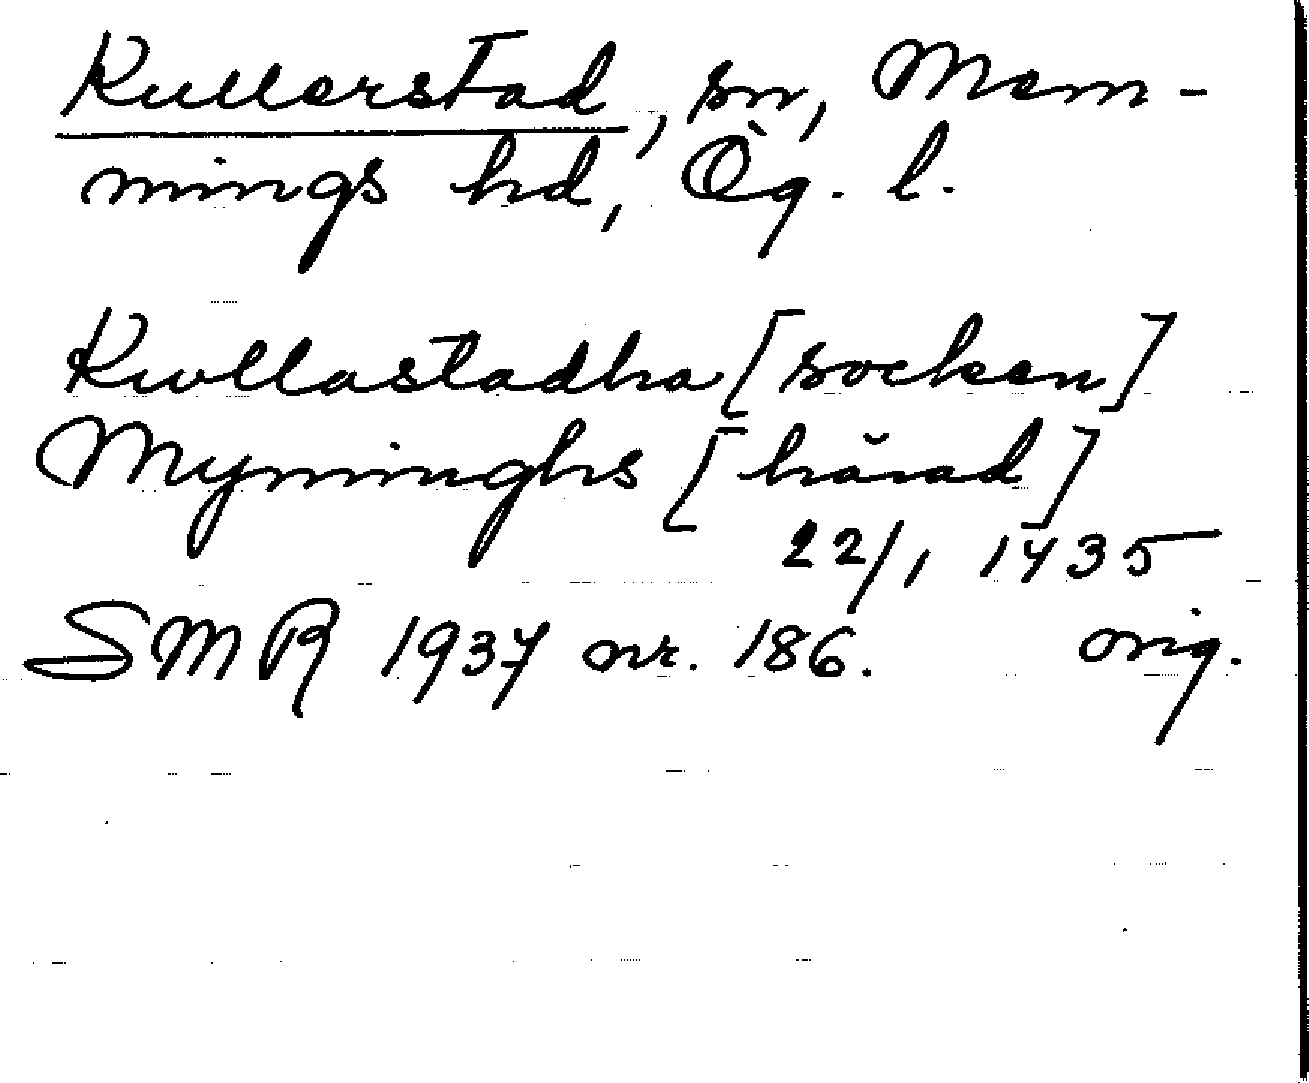 Kullerstad, sn, Mem-
mings hd, Ög. l.
Kwllastadha [socken]
Myninghs [härad]
22/1 1435
SMR 1937 nr. 186. orig.